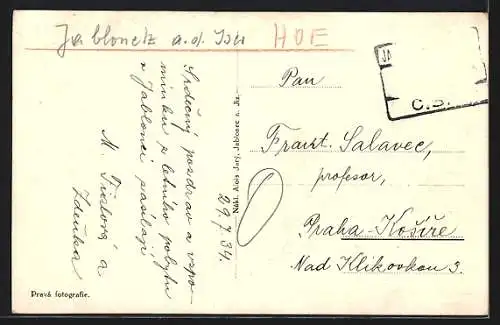 Jablonetz a.d. Iser HOE
Srdečný pozdrav a vzpo-
mínku z letního pobytu
v Jablonci zasílají
M. a
Zdeňka
29.7.34.
Nákl. Alois Jerj, Jablonec n. Jiz.
C.S.
Pan
Frant. Salavec,
profesor,
Praha-Košíře
Nad Klikovkou 3.
Pravá fotografie.